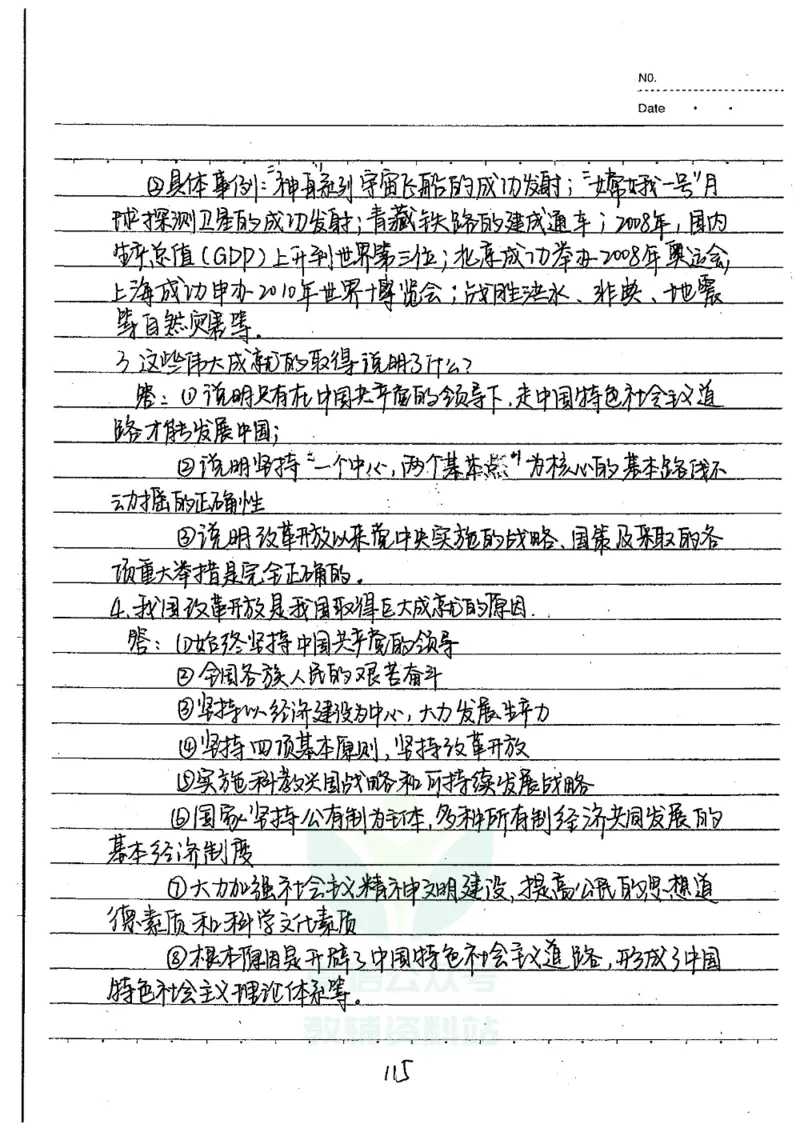 NO.
Date
②具体事例:"神舟"系列宇宙飞船的成功发射;"嫦娥一号"月
球探测卫星的成功发射;青藏铁路的建成通车;2008年,国内
生产总值(GDP)上升到世界第三位;北京成功举办2008年奥运会,
上海成功申办2010年世界博览会;战胜洪水、非典、地震
等自然灾害等.
3.这些伟大成就的取得说明了什么?
答:①说明只有在中国共产党的领导下,走中国特色社会主义道
路才能发展中国;
②说明坚持"一个中心,两个基本点"为核心的基本路线不
动摇的正确性
③说明改革开放以来党中央实施的战略、国策及采取的各
项重大举措是完全正确的。
4.我国改革开放是我国取得巨大成就的原因.
答:①始终坚持中国共产党的领导
②全国各族人民的艰苦奋斗
③坚持以经济建设为中心,大力发展生产力
④坚持四项基本原则,坚持改革开放
⑤实施科教兴国战略和可持续发展战略
⑥国家坚持公有制为主体,多种所有制经济共同发展的
基本经济制度
⑦大力加强社会主义精神文明建设,提高公民的思想道
德素质和科学文化素质
⑧根本原因是开辟了中国特色社会主义道路,形成了中国
特色社会主义理论体系等。
微信公众号
教辅资料站
115